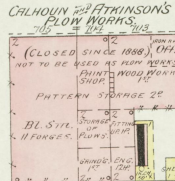 CALHOUN AND ATKINSON'S
PLOW WORKS.
705 = 704 703
2 2
(CLOSED SINCE 1886),
NOT TO BE USED AS PLOW WORKS
PAINT SHOP. WOOD WORK 1ST
PATTERN STORAGE 2D
BL. SM.
11 FORGES.
STORAGE OF PLOWS.
GRIND'G 1ST
ENG. 12H.